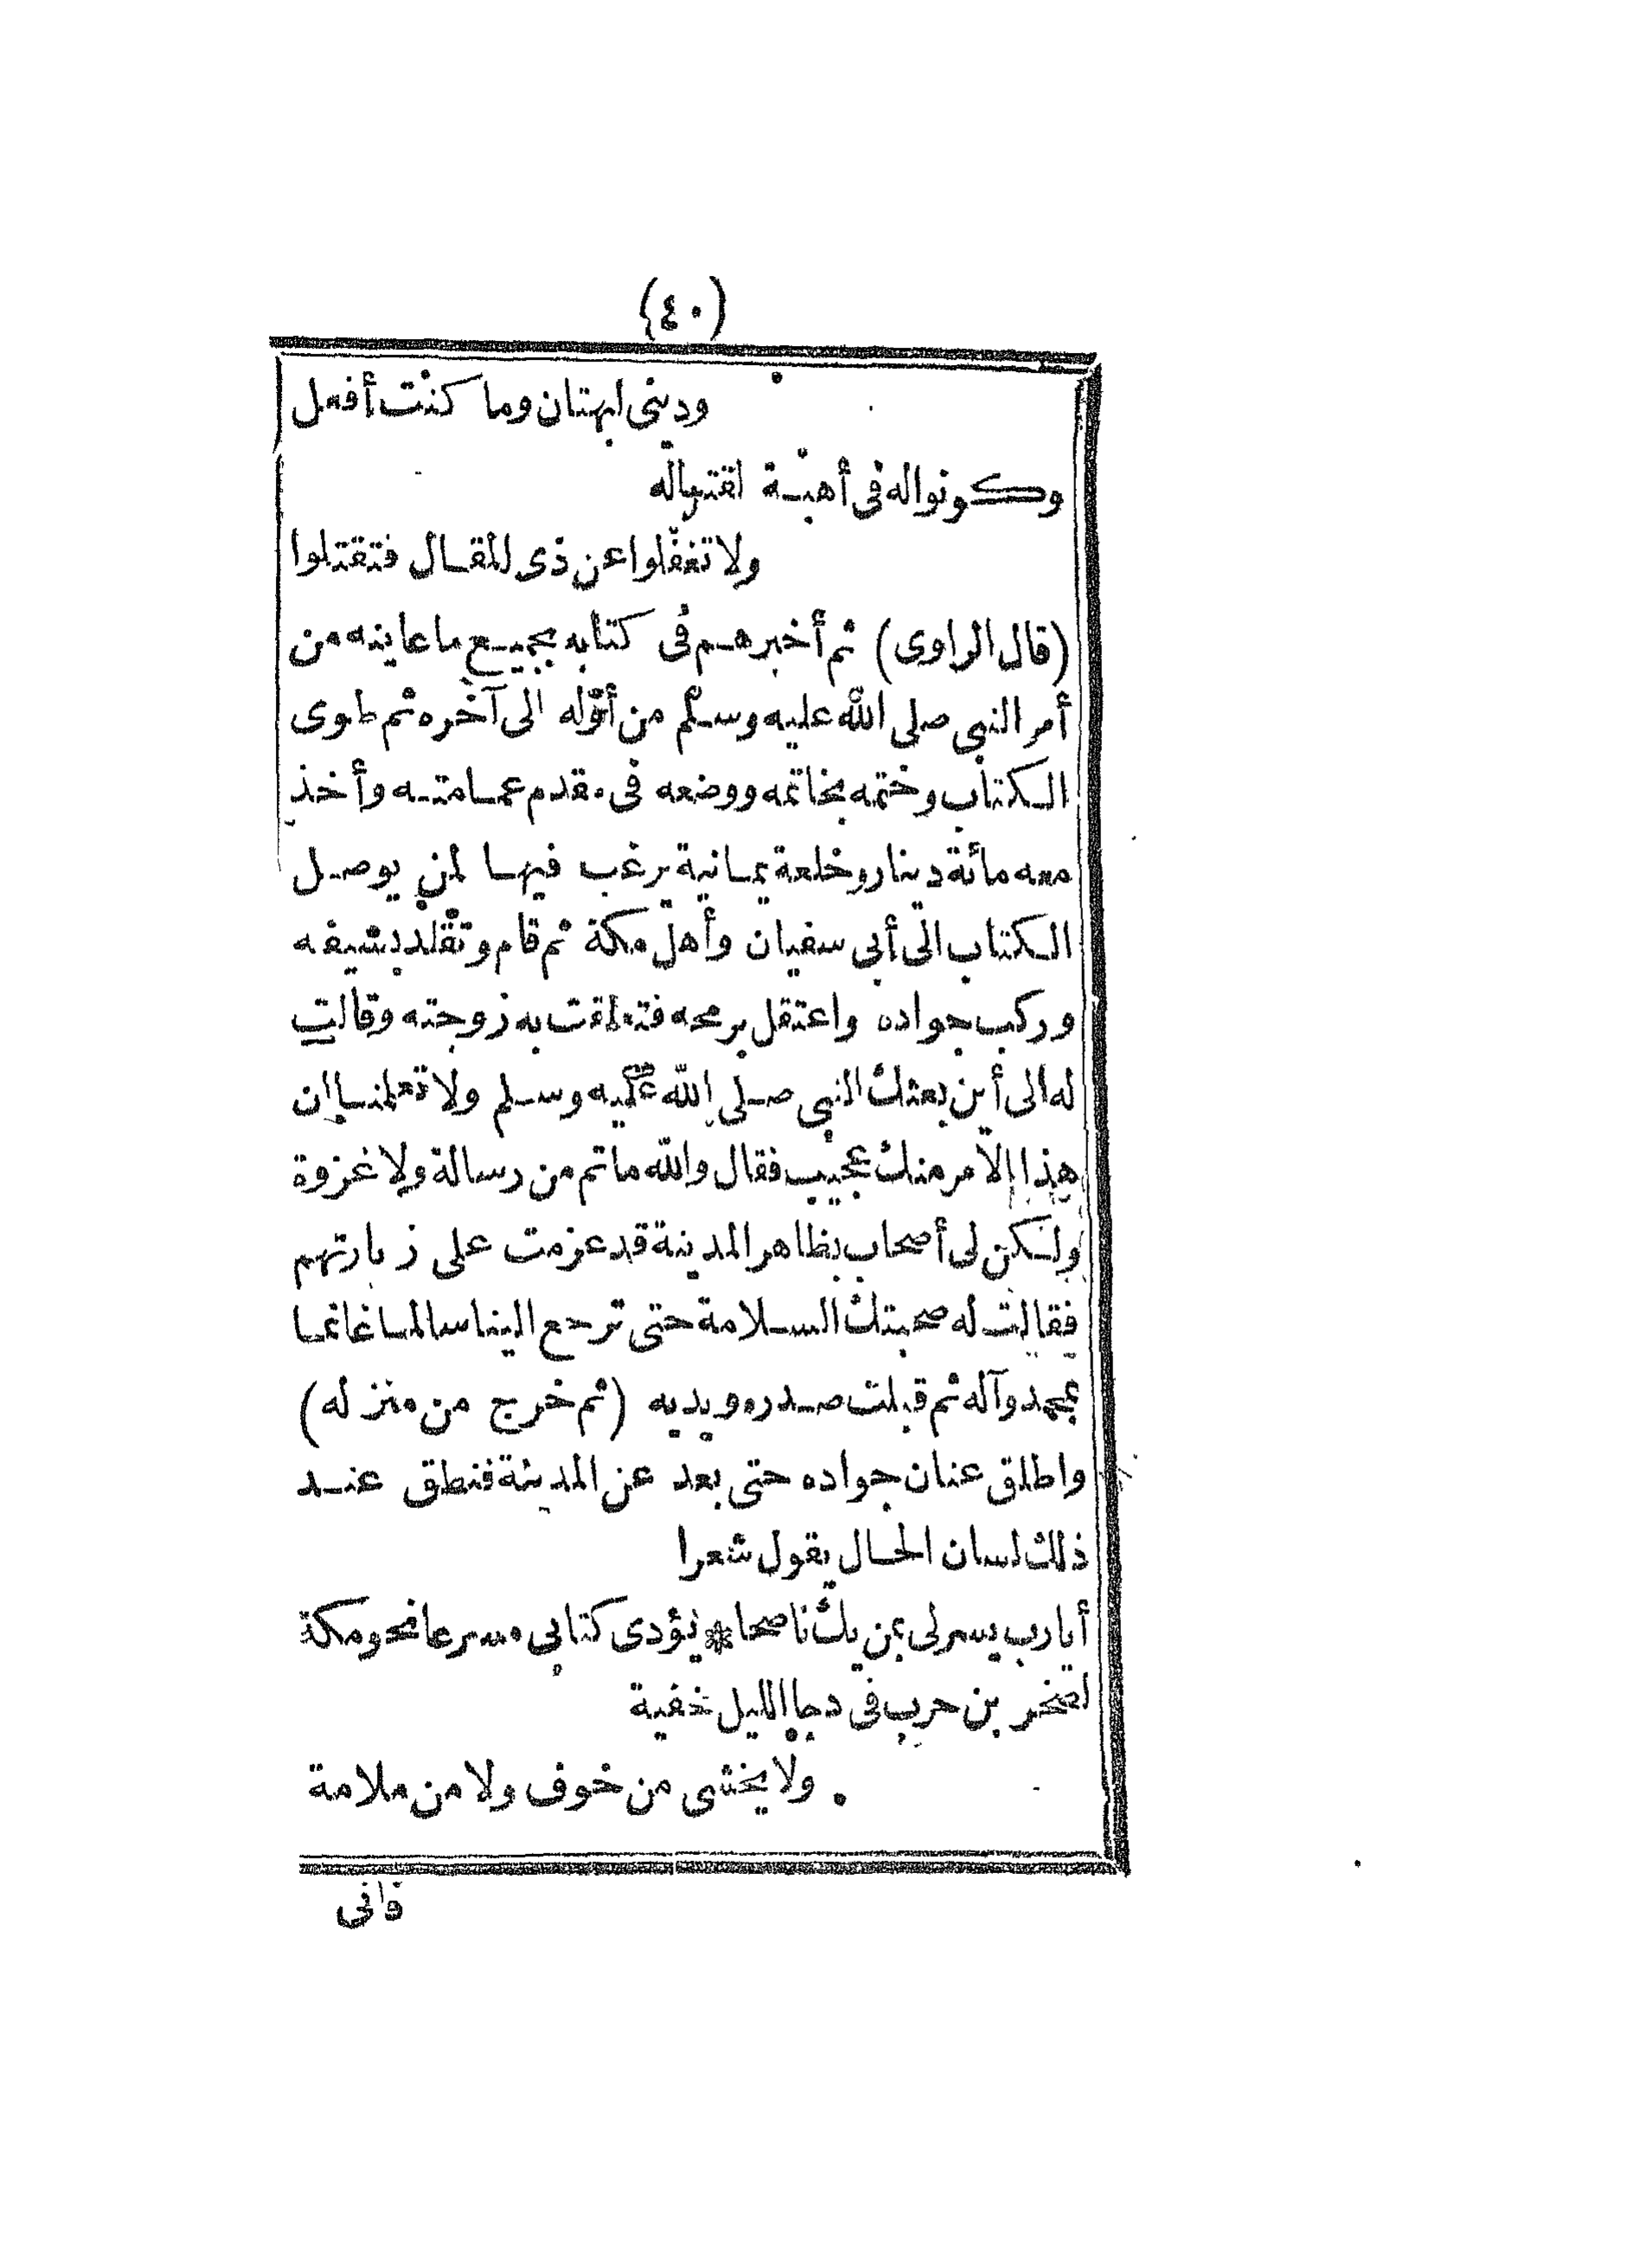 (٤٠)
ودينى لبهتان وما كنت أفعل
وكونواله فى أهبة لقتاله
ولا تغفلوا عن ذى المقال فتقتلوا
(قال الراوى) ثم أخبرهم فى كتابه بجميع ما عاينه من
أمر النبى صلى الله عليه وسلم من أوّله الى آخره ثم طوى
الكتاب وختمه بخاتمه ووضعه فى مقدم عمامته وأخذ
معه مائة دينار وخلعة يمانية يرغب فيها لمن يوصل
الكتاب الى أبى سفيان وأهل مكة ثم قام وتقلد بسيفه
وركب جواده واعتقل برمحه فتعلقت به زوجته وقالت
له الى أين بعثك النبى صلى الله عليه وسلم ولا تعلمنا ان
هذا الامر منك عجيب فقال والله ماتم من رسالة ولا غزوة
ولكن لى أصحاب بظاهر المدينة قد عزمت على زيارتهم
فقالت له صحبتك السلامة حتى ترجع الينا سالما غانما
بمحمد وآله ثم قبلت صدره ويديه (ثم خرج من منزله)
واطلق عنان جواده حتى بعد عن المدينة فنطق عند
ذلك لسان الحال يقول شعرا
أيا رب يسر لى بمن يك ناصحا * يؤدى كتابى مسرعا نحو مكة
لصخر بن حرب فى دجا الليل خفية
ولا يختشى من خوف ولا من ملامة
فانى